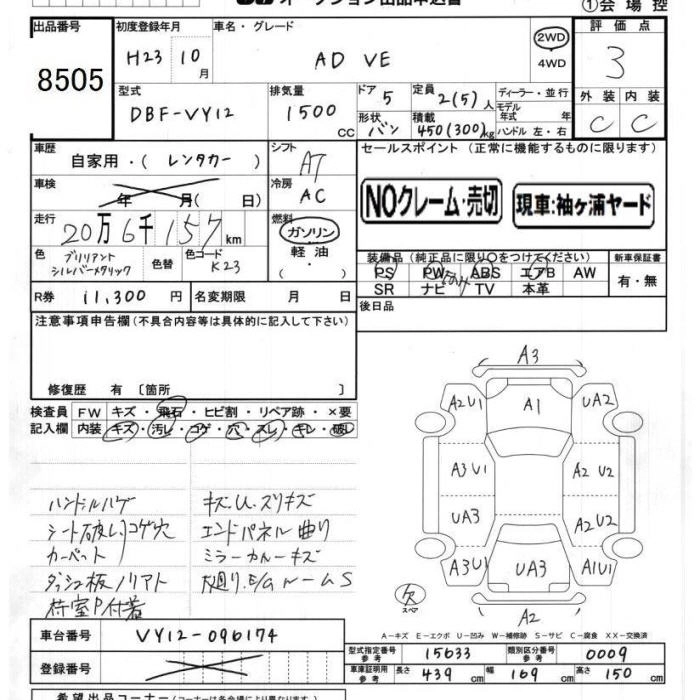 ①会場控
出品番号
8505
初度登録年月
H23 10月
車名・グレード
AD VE
2WD
4WD
評価点
3
型式
DBF-VY12
排気量
1500cc
ドア 5
形状 バン
定員 2(5)人
積載 450(300)kg
ディーラー・並行
モデル年式 年式
ハンドル 左・右
外装 内装
C C
車歴
自家用・(レンタカー)
シフト
AT
車検
年 月( 日)
冷房
AC
走行
20万6千157km
燃料
ガソリン
軽油
・
色
ブリリアント
シルバーメタリック
色替
色コード
K23
セールスポイント(正常に機能するものに限ります)
NOクレーム・売切
現車:袖ヶ浦ヤード
装備品(純正品に限り○をつけてください)
PS PW ABS エアB AW
SR ナビ TV 本革
新車保証書
有・無
R券 11,300円
名変期限 月 日
後日品
注意事項申告欄(不具合内容等は具体的に記入して下さい)
修復歴 有〔箇所 〕
検査員 FW キズ・飛石・ヒビ割・リペア跡・×要
記入欄 内装 キズ・汚レ・コゲ・穴・スレ・キレ・破レ
ハンドルハゲ
シート破レ コゲ穴
カーペット
ダッシュ板ノリアト
荷室P付着
キズ.U.スリキズ
エンドパネル曲り
ミラーカバーキズ
下廻り.E/GルームS
A3
A2U1 A1 UA2
A3U1 A2U2
UA3 A2U2
A3U1 UA3 A1U1
A2
欠
スペア
A-キズ E-エクボ U-凹み W-補修跡 S-サビ C-腐食 XX-交換済
車台番号 VY12-096174
登録番号
型式指定番号 参考 15633
類別区分番号 参考 0009
車庫証明用 参考 長さ 439cm 幅 169cm 高さ 150cm